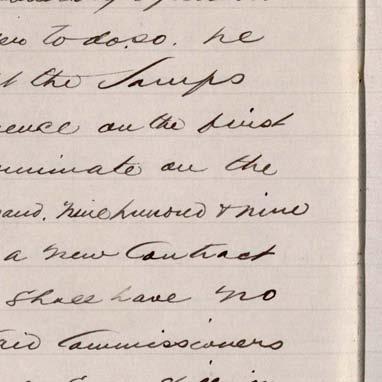 to do so. he
the Lamps
ence on the first
minate on the
sand, nine hundred & nine
a new Contract
shall have no
aid Commissioners